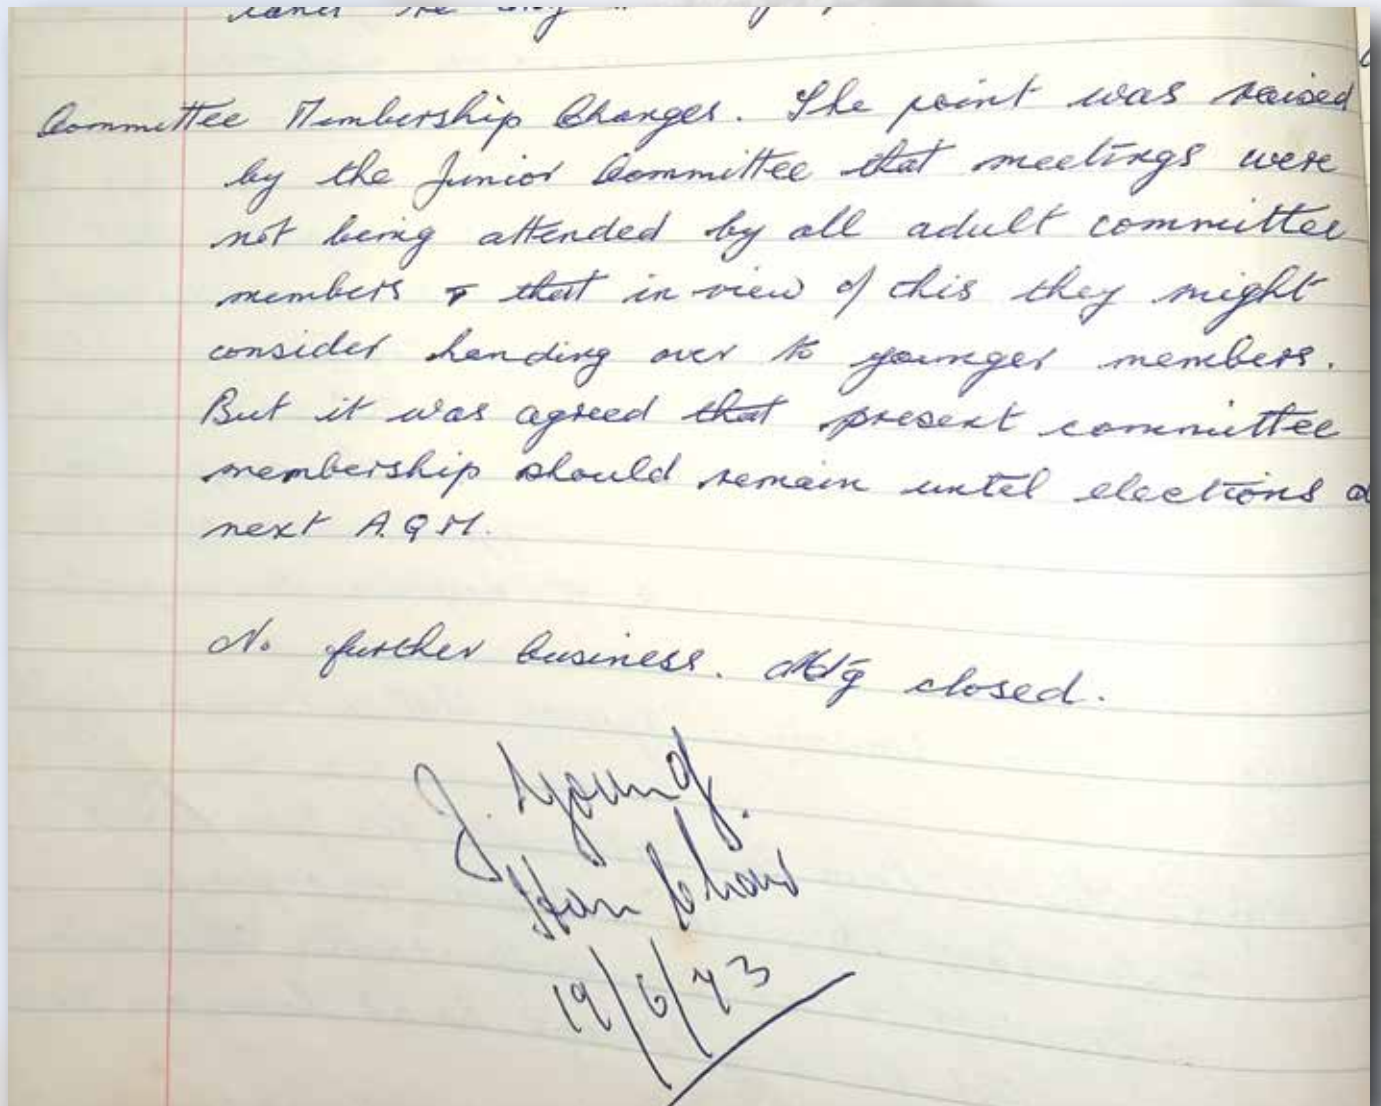 Committee Membership Changes. The point was raised
by the Junior Committee that meetings were
not being attended by all adult committee
members & that in view of this they might
consider handing over to younger members.
But it was agreed that present committee
membership should remain until elections
next A.G.M.
No further business. Mtg closed.
J. Young.
Hon Chair
19/6/73